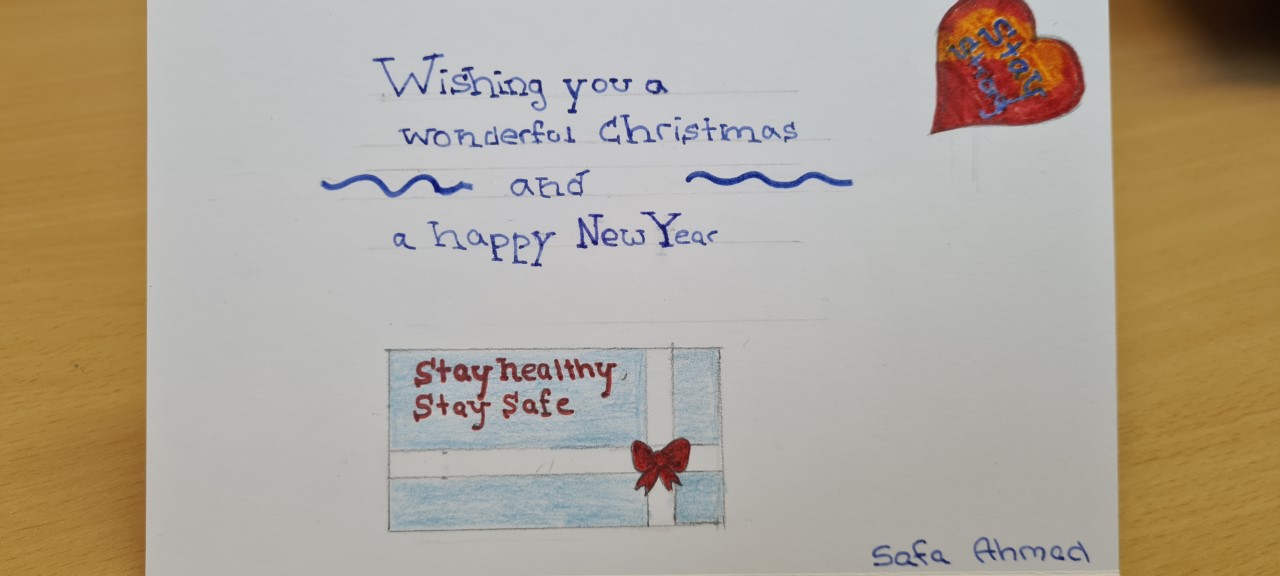 Wishing you a
wonderful Christmas
and
a happy New Year
Stay
Strong
Stay healthy,
Stay Safe
Safa Ahmad